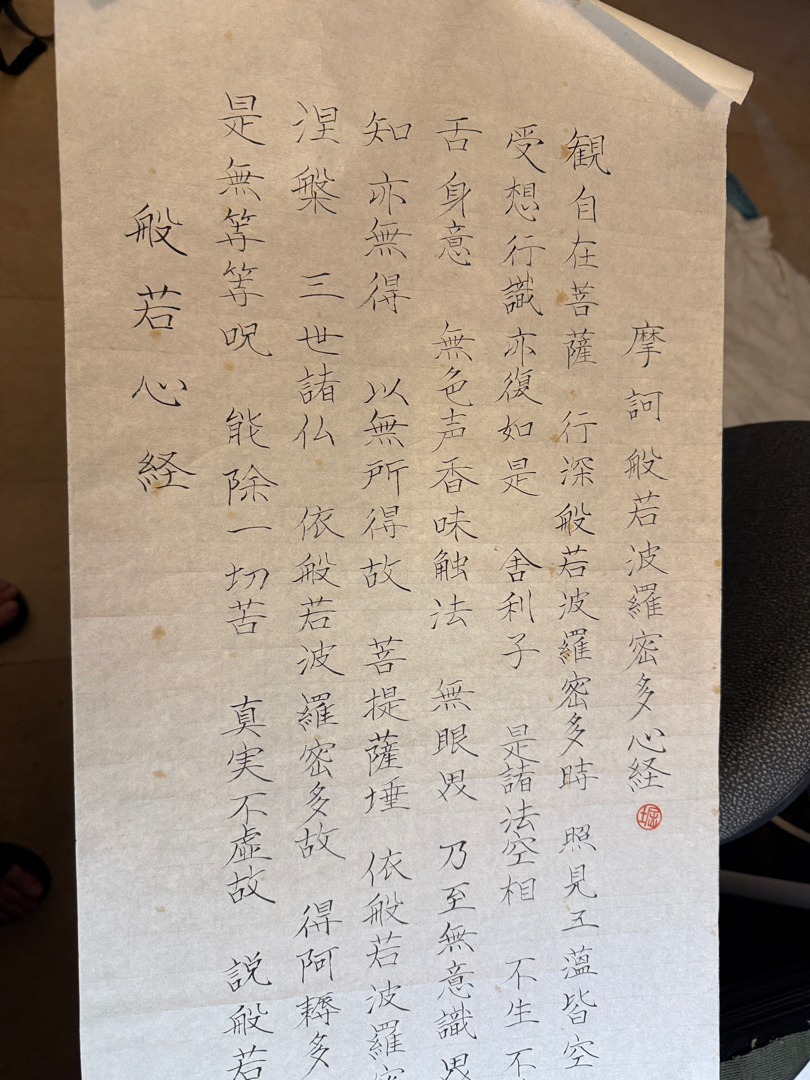 摩訶般若波羅密多心経
堀
観自在菩薩 行深般若波羅密多時 照見五蘊皆空
受想行識亦復如是 舎利子 是諸法空相 不生不
舌身意 無色声香味触法 無眼界 乃至無意識界
知亦無得 以無所得故 菩提薩埵 依般若波羅密
涅槃 三世諸仏 依般若波羅密多故 得阿耨多
是無等等呪 能除一切苦 真実不虚故 説般若
般若心経